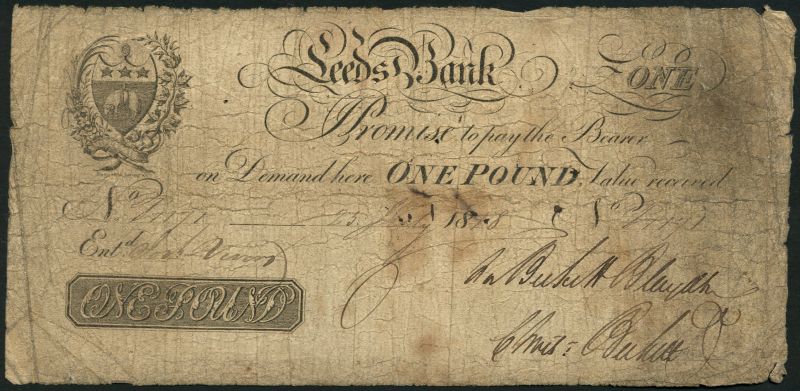 Leeds Bank
ONE
I Promise to pay the Bearer
on Demand here ONE POUND, Value received
No 25 1818 No
Entd
ONE POUND
Beckett Blayds
Christ: Beckett